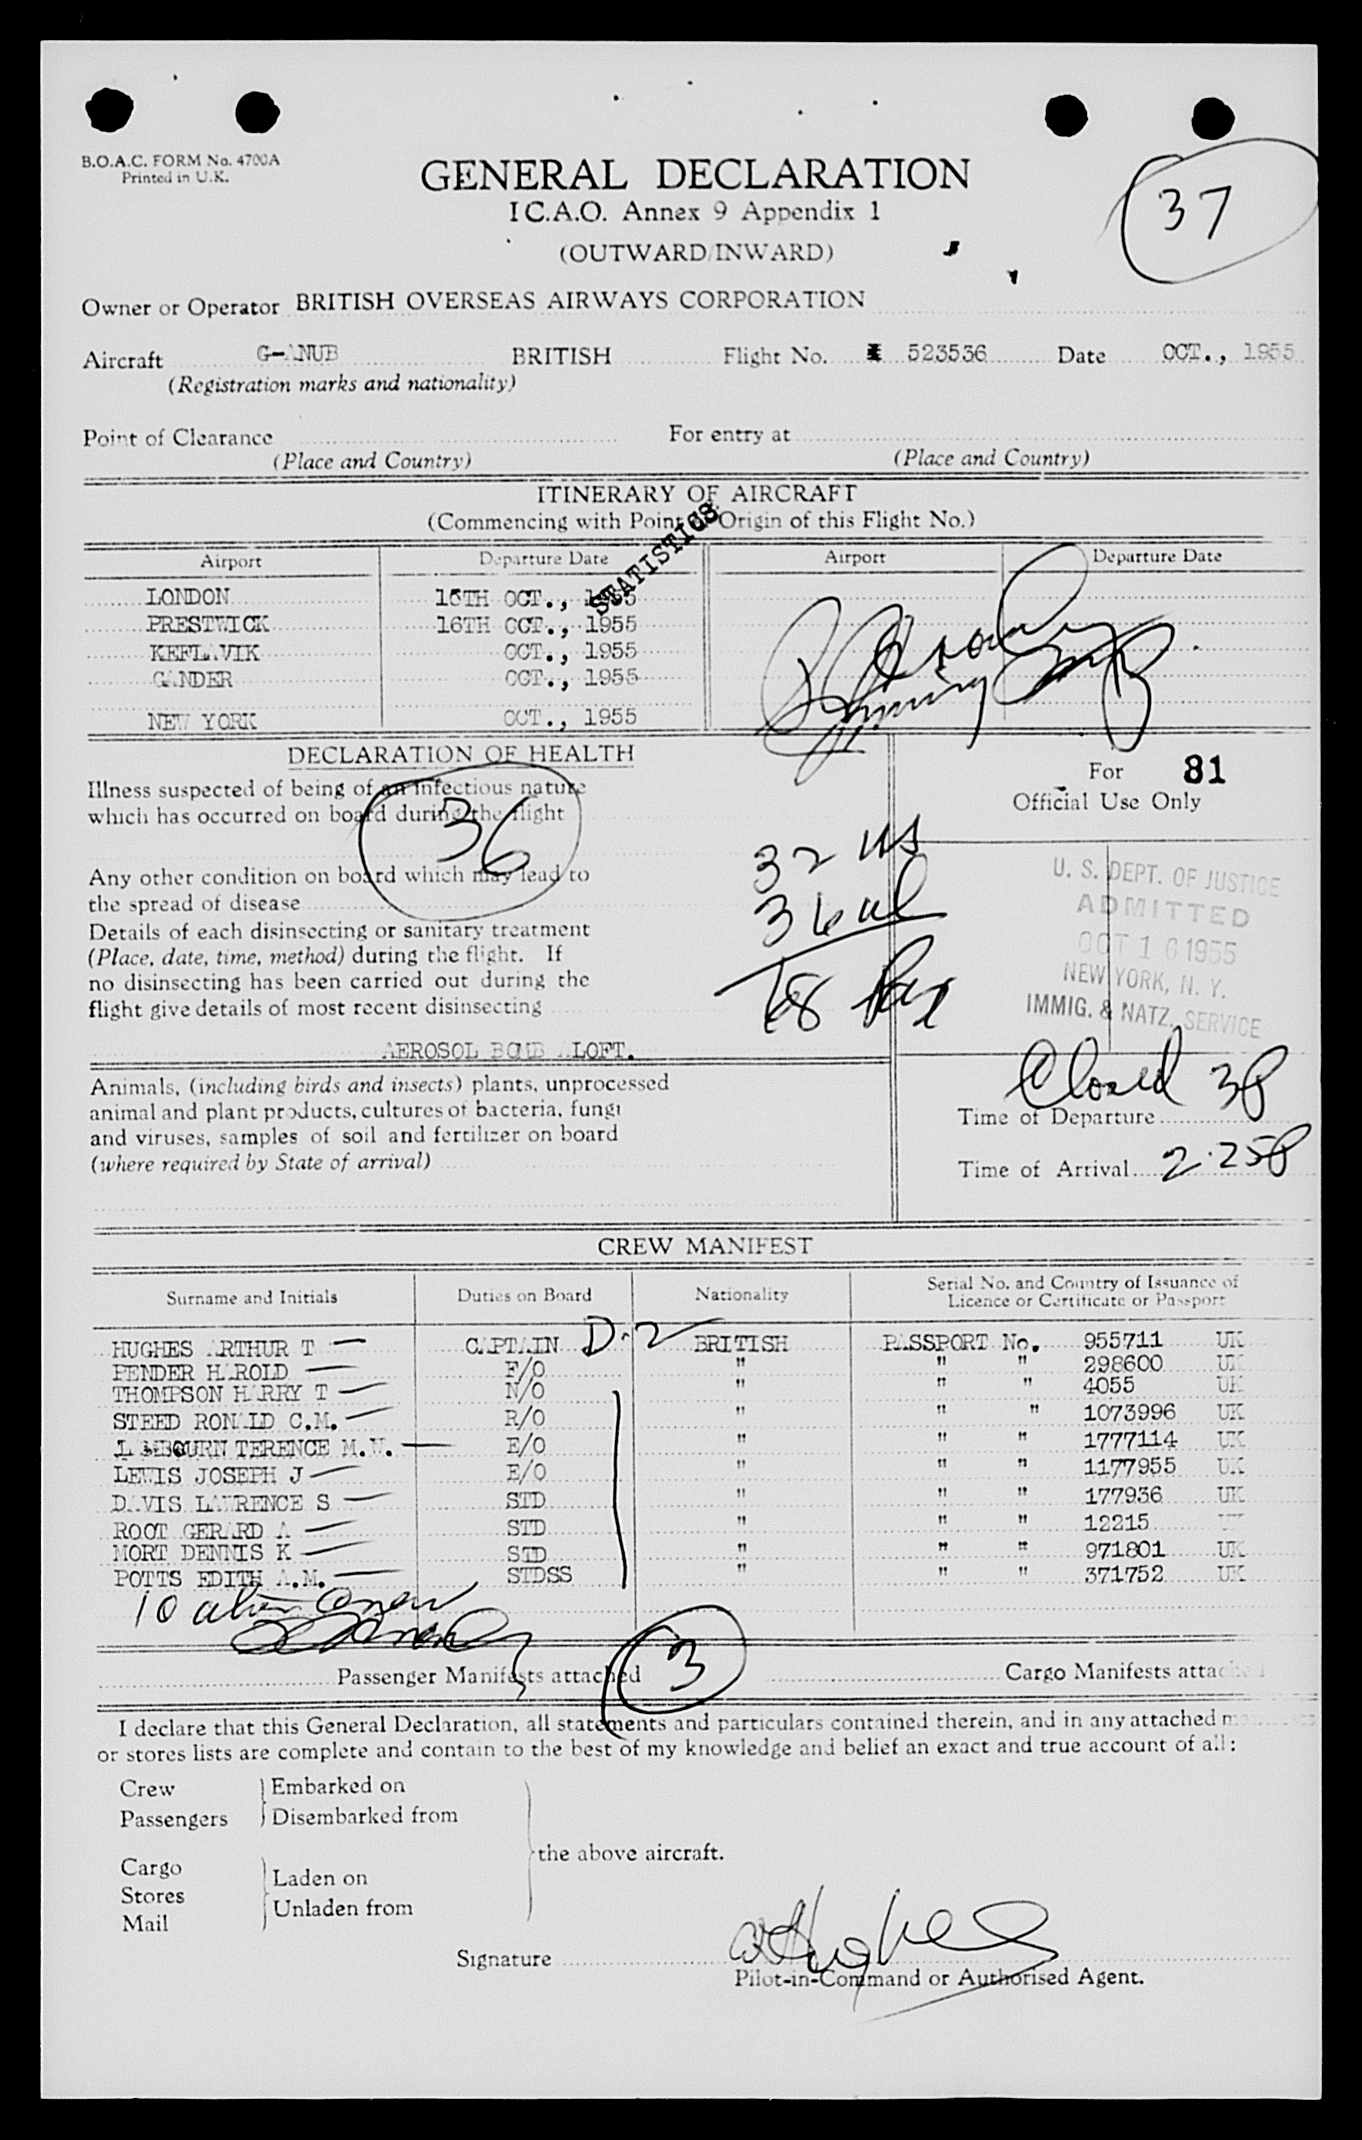 B.O.A.C. FORM No. 4700A
Printed in U.K.
GENERAL DECLARATION
I C.A.O. Annex 9 Appendix 1
(OUTWARD/INWARD)
37
Owner or Operator BRITISH OVERSEAS AIRWAYS CORPORATION
Aircraft G-ANUB BRITISH Flight No. 523536 Date OCT., 1955
(Registration marks and nationality)
Point of Clearance For entry at
(Place and Country) (Place and Country)
ITINERARY OF AIRCRAFT
(Commencing with Point of Origin of this Flight No.)
STATISTICS
Airport Departure Date Airport Departure Date
LONDON 15TH OCT., 1955
PRESTWICK 16TH OCT., 1955
KEFLAVIK OCT., 1955
GANDER OCT., 1955
NEW YORK OCT., 1955
DECLARATION OF HEALTH
Illness suspected of being of an infectious nature
which has occurred on board during the flight
36
Any other condition on board which may lead to
the spread of disease
Details of each disinsecting or sanitary treatment
(Place, date, time, method) during the flight. If
no disinsecting has been carried out during the
flight give details of most recent disinsecting
AEROSOL BOMB ALOFT.
Animals, (including birds and insects) plants, unprocessed
animal and plant products, cultures of bacteria, fungi
and viruses, samples of soil and fertilizer on board
(where required by State of arrival)
32 US
36 al
68 Pax
For 81
Official Use Only
U. S. DEPT. OF JUSTICE
ADMITTED
OCT 16 1955
NEW YORK, N. Y.
IMMIG. & NATZ. SERVICE
Closed 3P
Time of Departure
Time of Arrival 2.25P
CREW MANIFEST
Surname and Initials Duties on Board Nationality Serial No. and Country of Issuance of
Licence or Certificate or Passport
HUGHES ARTHUR T — CAPTAIN D-2 BRITISH PASSPORT No. 955711 UK
PENDER HAROLD — F/O " " " 298600 UK
THOMPSON HARRY T — N/O " " " 4055 UK
STEED RONALD C.M. — R/O " " " 1073996 UK
TERENCE M.W. — E/O " " " 1777114 UK
LEWIS JOSEPH J — E/O " " " 1177955 UK
DAVIS LAWRENCE S — STD " " " 177936 UK
ROOT GERARD A — STD " " " 12215
MORT DENNIS K — STD " " " 971801 UK
POTTS EDITH A.M. — STDSS " " " 371752 UK
10 alien crew
Passenger Manifests attached 3 Cargo Manifests attached
I declare that this General Declaration, all statements and particulars contained therein, and in any attached
or stores lists are complete and contain to the best of my knowledge and belief an exact and true account of all:
Crew Embarked on
Passengers Disembarked from
the above aircraft.
Cargo Laden on
Stores
Mail Unladen from
Signature A T Hughes
Pilot-in-Command or Authorised Agent.